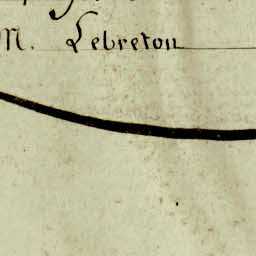 M. Lebreton